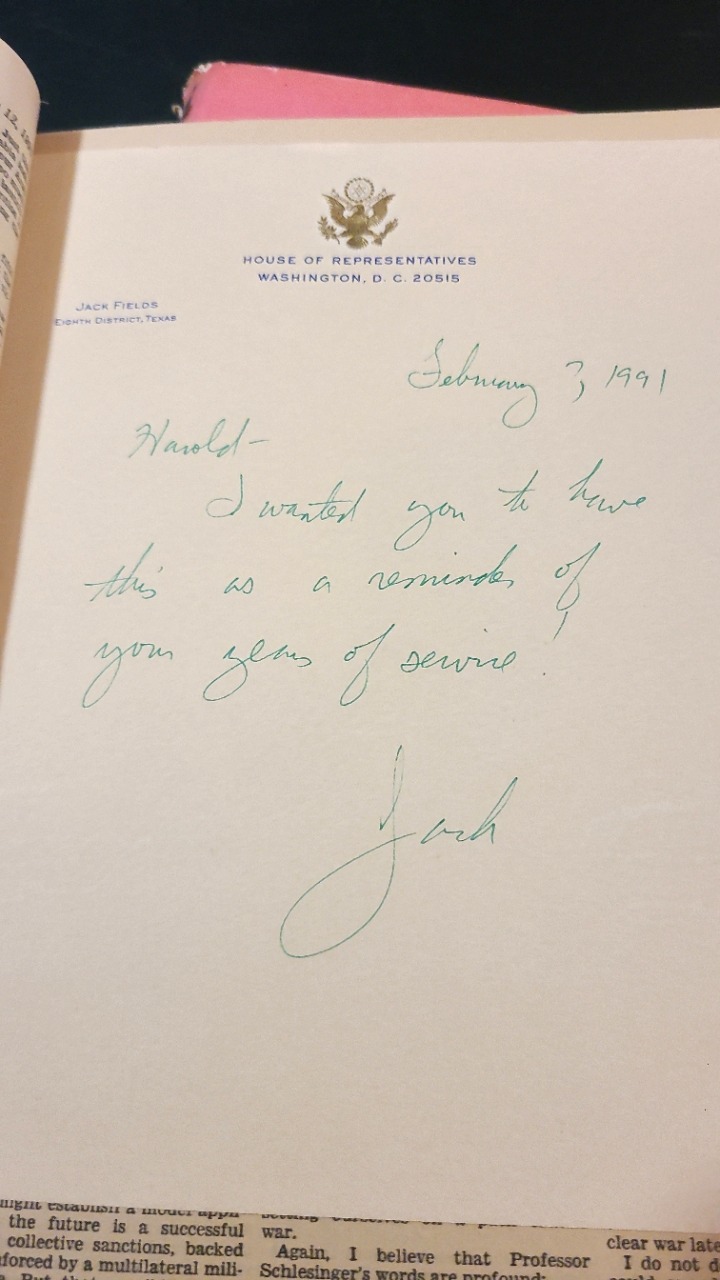 HOUSE OF REPRESENTATIVES
WASHINGTON, D. C. 20515
JACK FIELDS
EIGHTH DISTRICT, TEXAS
February 3, 1991
Harold-
I wanted you to have
this as a reminder of
your years of service!
Jack
the future is a successful
collective sanctions, backed
forced by a multilateral mili-
war.
Again, I believe that Professor
Schlesinger's words are
clear war late
I do not d